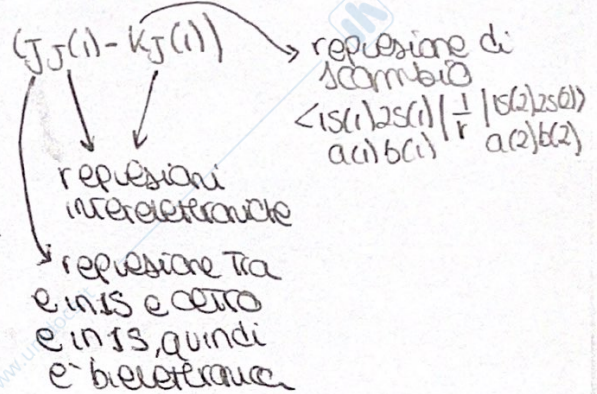 (Jj(i) - Kj(i))
repulsione di
scambio
<1s(1)2s(1)|1/r|1s(2)2s(2)>
a(1)b(1) a(2)b(2)
repulsioni
interelettroniche
repulsione tra
e in 1s e altro
e in 1s, quindi
è bielettronica